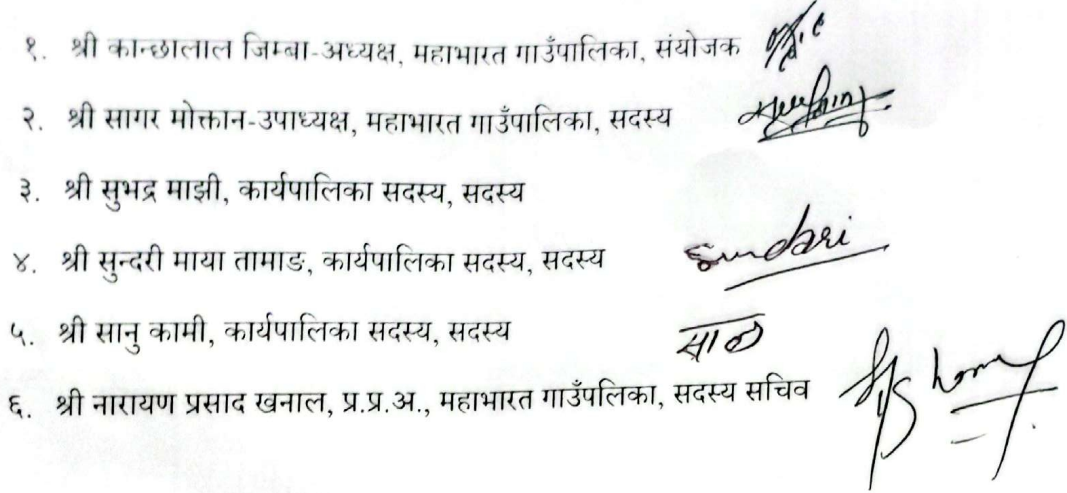 १. श्री कान्छालाल जिम्बा-अध्यक्ष, महाभारत गाउँपालिका, संयोजक
२. श्री सागर मोक्तान-उपाध्यक्ष, महाभारत गाउँपालिका, सदस्य
३. श्री सुभद्र माझी, कार्यपालिका सदस्य, सदस्य
४. श्री सुन्दरी माया तामाङ, कार्यपालिका सदस्य, सदस्य Sundari
५. श्री सानु कामी, कार्यपालिका सदस्य, सदस्य
६. श्री नारायण प्रसाद खनाल, प्र.प्र.अ., महाभारत गाउँपलिका, सदस्य सचिव